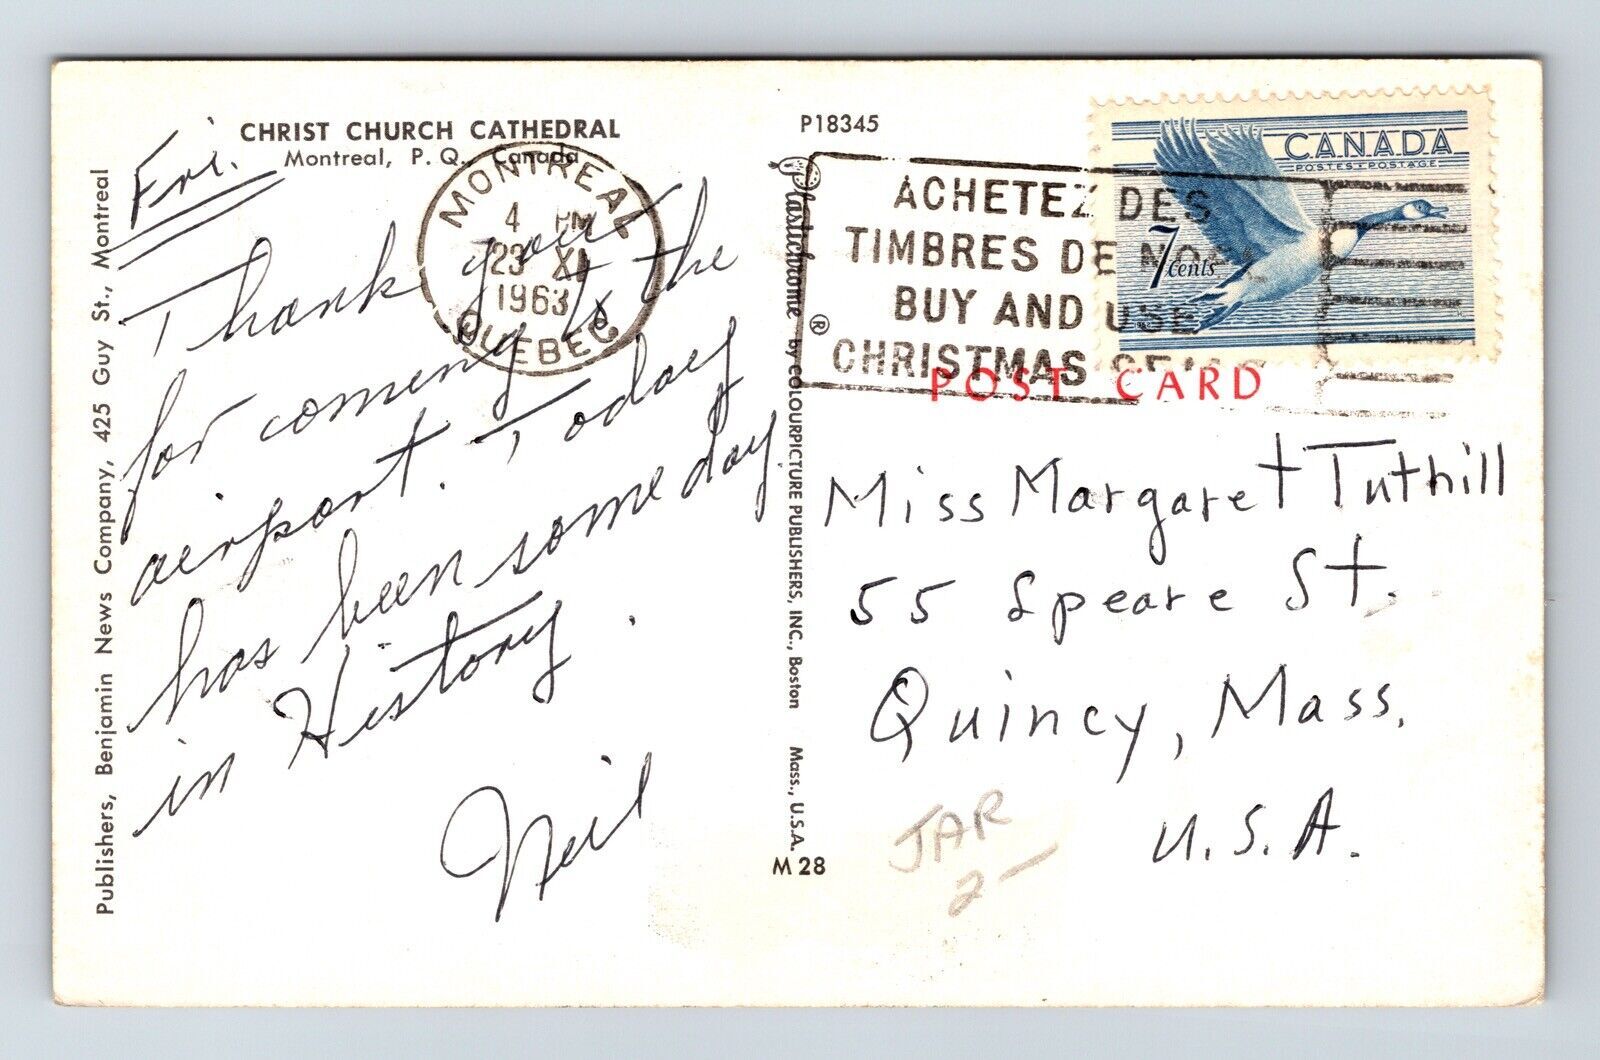 CHRIST CHURCH CATHEDRAL
Montreal, P. Q., Canada
Fri.
Thank you
for coming to the
airport. Today
has been some day
in History.
Neil
Publishers, Benjamin News Company, 425 Guy St., Montreal
MONTREAL
4 PM
23 XI
1963
QUEBEC
P18345
Plastichrome ® by COLOURPICTURE PUBLISHERS, INC., Boston Mass., U.S.A.
M 28
ACHETEZ DES
TIMBRES DE NOEL
BUY AND USE
CHRISTMAS SEALS
CANADA
POSTES • POSTAGE
7 cents
POST CARD
Miss Margaret Tuthill
55 Speare St.
Quincy, Mass.
U.S.A.
JAR
2-